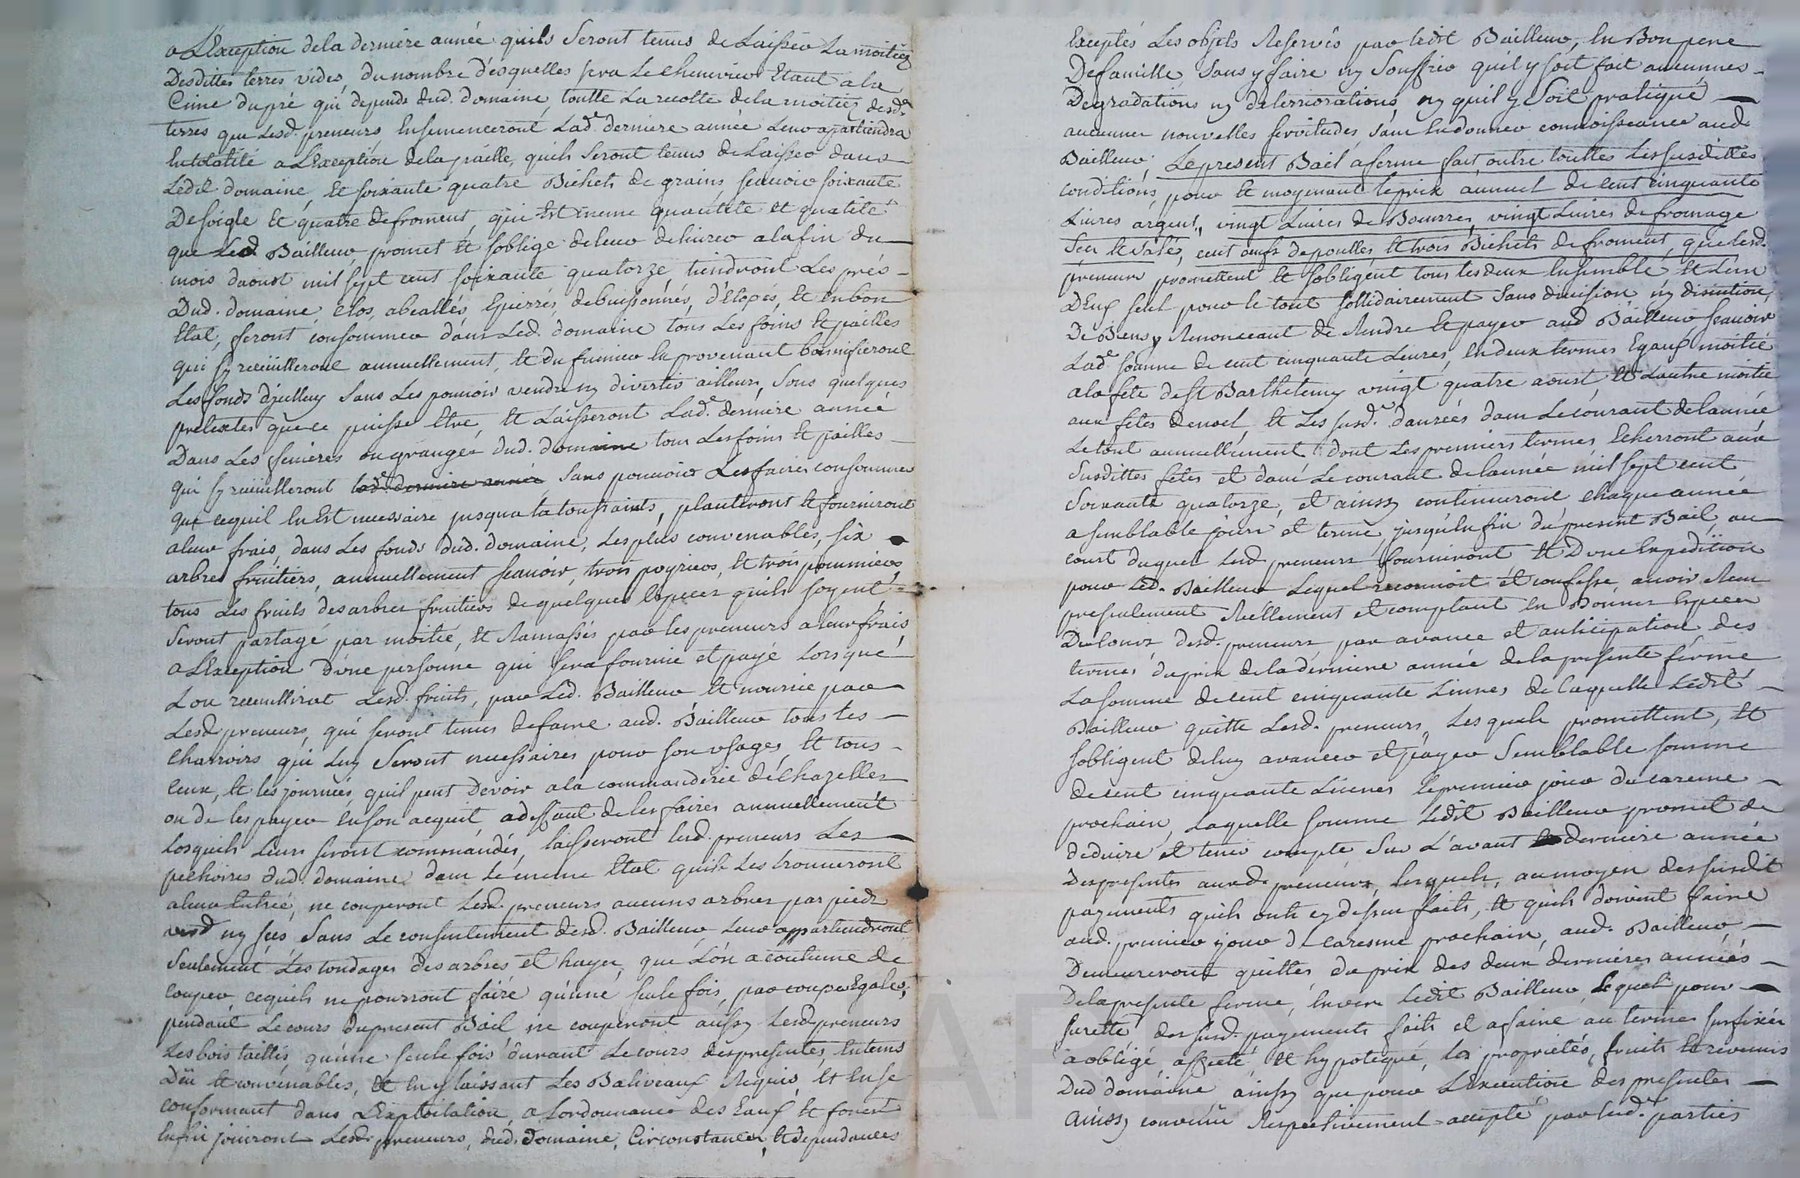 a L'Exception dela derniere année quils Seront tenus de Laisser La moitiez
Desdittes terres vides, du nombre desquelles sera Le Chenevier Etant a la
Cime dupré qui depends dud. domaine, toutte La recolte dela moitiez desd.
terres que Lesd. preneurs Ensemenceront Lad.e derniere année Leur apartiendra
En totalité a L'Exception dela paille, quils Seront tenus de Laisser dans
Ledit domaine, Et soixante quatre Bichets de grains sçauoir soixante
De soigle Et quatre de froment, qui Est meme quantité et qualité
que Led Bailleur, promet Et soblige deleur deliurer alafin du
mois daoust mil sept cent soixante quatorze, tiendront Les prés
Dud. domaine, Clos, abeallés, Epierrés, debuissonnés, d'Etopés, Et en bon
Etat, feront consommer dans Led. domaine tous Les foins Et pailles
qui sy recüilleront annuellement, Et du fumier En provenant bonnifieront
Les fonds dicelluy Sans Les pouvoir vendre ny divertir ailleurs, Sous quelques
pretextes que ce puisse Etre, Et Laisseront Lad.e derniere année
Dans Les fenieres ou granges dud. domaine tous Les foins Et pailles
qui sy recüilleront lad. derniere année Sans pouvoir Les faire consommer
que cequil En Est necessaire jusqua la toussaints, planteront Et fourniront
aleur frais, dans Les fonds dud. domaine, Les plus convenables, six
arbres fruitiers, annuellement sçauoir, trois poyriers, Et trois pommiers
tous Les fruits des arbres fruitiers de quelques Especes quils soyent
Seront partagé par moitié, Et Ramassés par les preneurs a leur frais
a L'Exception Dune personne qui sera fournie et payé Lorsque
Lon recüillirat Lesd. fruits, par Led. Bailleur Et nourrie par
Lesd preneurs, qui seront tenus de faire aud. Bailleur tous les
Charrois qui Luy Seront necessaires pour son usages, Et tous
Ceux, Et les journées, quil peut Devoir ala commanderie de Chazelles
ou de les payer En son acquit, adeffaut de les faires annuellement
Lorsquils Leurs seront commandés, laisseront lesd. preneurs Les
pechoires dud. domaine dans Le meme Etat quils Les trouveront
aleur Entrée, ne couperont Lesd. preneurs aucuns arbres par pieds
verd ny secs Sans Le consentement desd. Bailleur, Leur appartiendront
Seulement Les tondages des arbres et hayes, que L'on a coutume de
couper, cequils ne pourront faire quune seule fois, par coupes Egales,
pendant Le cours dupresent Bail ne couperont aussy Lesd. preneurs
Les bois taillis quune seule fois durant Le cours des presentes, En tems
Dûe Et convenables, Et En y laissant Les Baliveaux Requis, Et En se
conformant dans L'Exploitation, a Lordonnance des Eaux Et forest
Enfin joüiront Lesd. preneurs, dud. domaine, Circonstances, Et dependances
Exceptés Les objets Reservés par ledit Bailleur, En Bon pere
De famille Sans y faire ny Souffrir quil y soit fait aucunnes
Degradations ny deterriorations, ny quil y Soit pratiqué
aucunnes nouvelles servitudes sans En donner connoisseance aud.
Bailleur. Le present Bail a ferme fait outre touttes Les susdittes
conditions, pour Et moyenant le prix annuel de cent cinquante
Livres argent, vingt Livres de Beurres, vingt Livres de fromage
Sec Et Salé, cent oeufs de poulles Et trois Bichets de froment, que lesd.
preneurs promettent Et sobligent tous les deux Ensemble Et L'un
D'Eux seul pour le tout sollidairement Sans division, ny discution
De Biens y Renonceant de Rendre Et payer aud Bailleur sçauoir
Lad.e somme de cent cinquante Livres, En deux termes Egaux moitié
ala fete de St Barthelemy vingt quatre aoust, Et L'autre moitié
aux fetes denoel, Et Les susd.es danrées dans Le courant de lannée
Le tout annuellement, dont Les premiers termes Echerront aux
Susdittes fetes et dans Le courant de lannée mil sept cent
Soixante quatorze, et ainssy continueront chaque année
a semblable jours et terme jusquEn fin du present Bail, au
court duquel Lesd. preneurs fourniront Et Dune Expedition
pour Led. Bailleur Lequel reconnoit et confesse, avoir Reçu
presentement Reellement et comptant En Bonnes Especes
De Cours desd. preneurs par avance et anticipation des
termes du prix dela derniere année dela presente ferme
La somme de cent cinquante Livres de laquelle Ledit
Bailleur quitte Lesd. preneurs, Les quels promettent, Et
sobligent de luy avancer et payer Semblable somme
de cent cinquante Livres Le premier jour du careme
prochain, Laquelle somme Ledit Bailleur promet de
deduire et tenir compte Sur L'avant derniere année
Des presentes auxd. preneurs, Lesquels, au moyen des susdit
payements quils onts cy dessu faits, Et quils doivent faire
aud. premier jour de caresme prochain, aud. Bailleur,
Demeureront quittes du prix des deux dernieres années
De la presente ferme, Envers Ledit Bailleur, Lequel pour
surette des susd. payements faits et afaire au terme susfixés
a obligé, affecté, Et hypotequé, les proprietés, fruits Et revenus
Dud domaine ainssy que pour L'Execution des presentes
Ainssy convenu Respectivement accepté par lesd. parties